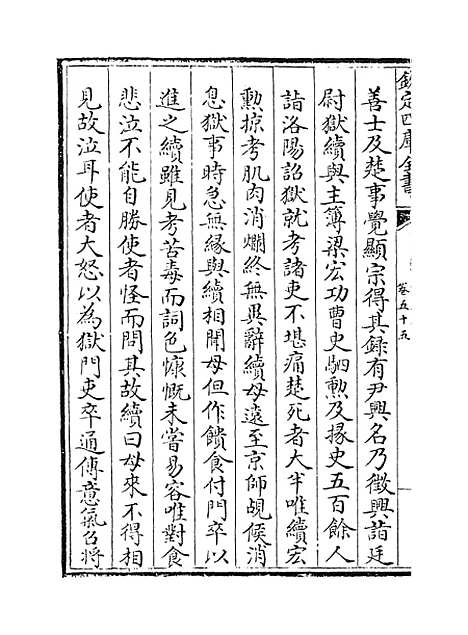 欽定四庫全書
卷五十五
善士及楚事覺顯宗得其錄有尹興名乃徵興詣廷
尉獄續與主簿梁宏功曹史駟勲及掾史五百餘人
詣洛陽詔獄就考諸吏不堪痛楚死者大半唯續宏
勲掠考肌肉消爛終無異辭續母遠至京師覘候消
息獄事特急無緣與續相聞母但作饋食付門卒以
進之續雖見考苦毒而詞色慷慨未嘗易容唯對食
悲泣不能自勝使者怪而問其故續曰母來不得相
見故泣耳使者大怒以為獄門吏卒通傳意氣召將